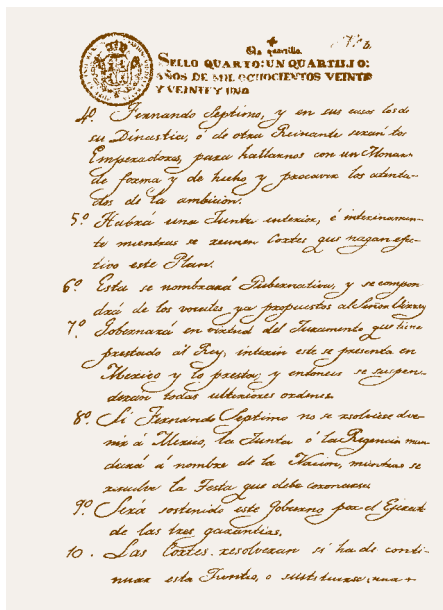 Un quartillo.
SELLO QUARTO: UN QUARTILLO:
AÑOS DE MIL OCHOCIENTOS VEINTE
Y VEINTE Y UNO
4º. Fernando Septimo, y en sus casos los de
su Dinastia, ó de otra Reinante serán los
Emperadores, para hallarnos con un Monar-
de forma y de hecho y precaver los atenta-
dos de la ambicion.
5º. Habrá una Junta interior, é interinamen-
te mientras se reunen Cortes que hagan efec-
tivo este Plan.
6º. Esta se nombrará Gubernativa, y se compon
drá de los vocales ya propuestos al Señor Virrey
7º. Gobernará en virtud del Juramento que tiene
prestado al Rey, interin este se presenta en
Mexico y lo presta, y entonces se suspen-
deran todas ulteriores ordenes.
8º. Si Fernando Septimo no se resolviese á ve-
nir á Mexico, la Junta ó la Regencia man
dará á nombre de la Nacion, mientras se
resuelve la Testa que debe coronarse.
9º. Será sostenido este Gobierno por el Ejercit
de las tres garantias.
10. Las Cortes resolveran si ha de conti-
nuar esta Junta, o sustituirse una r